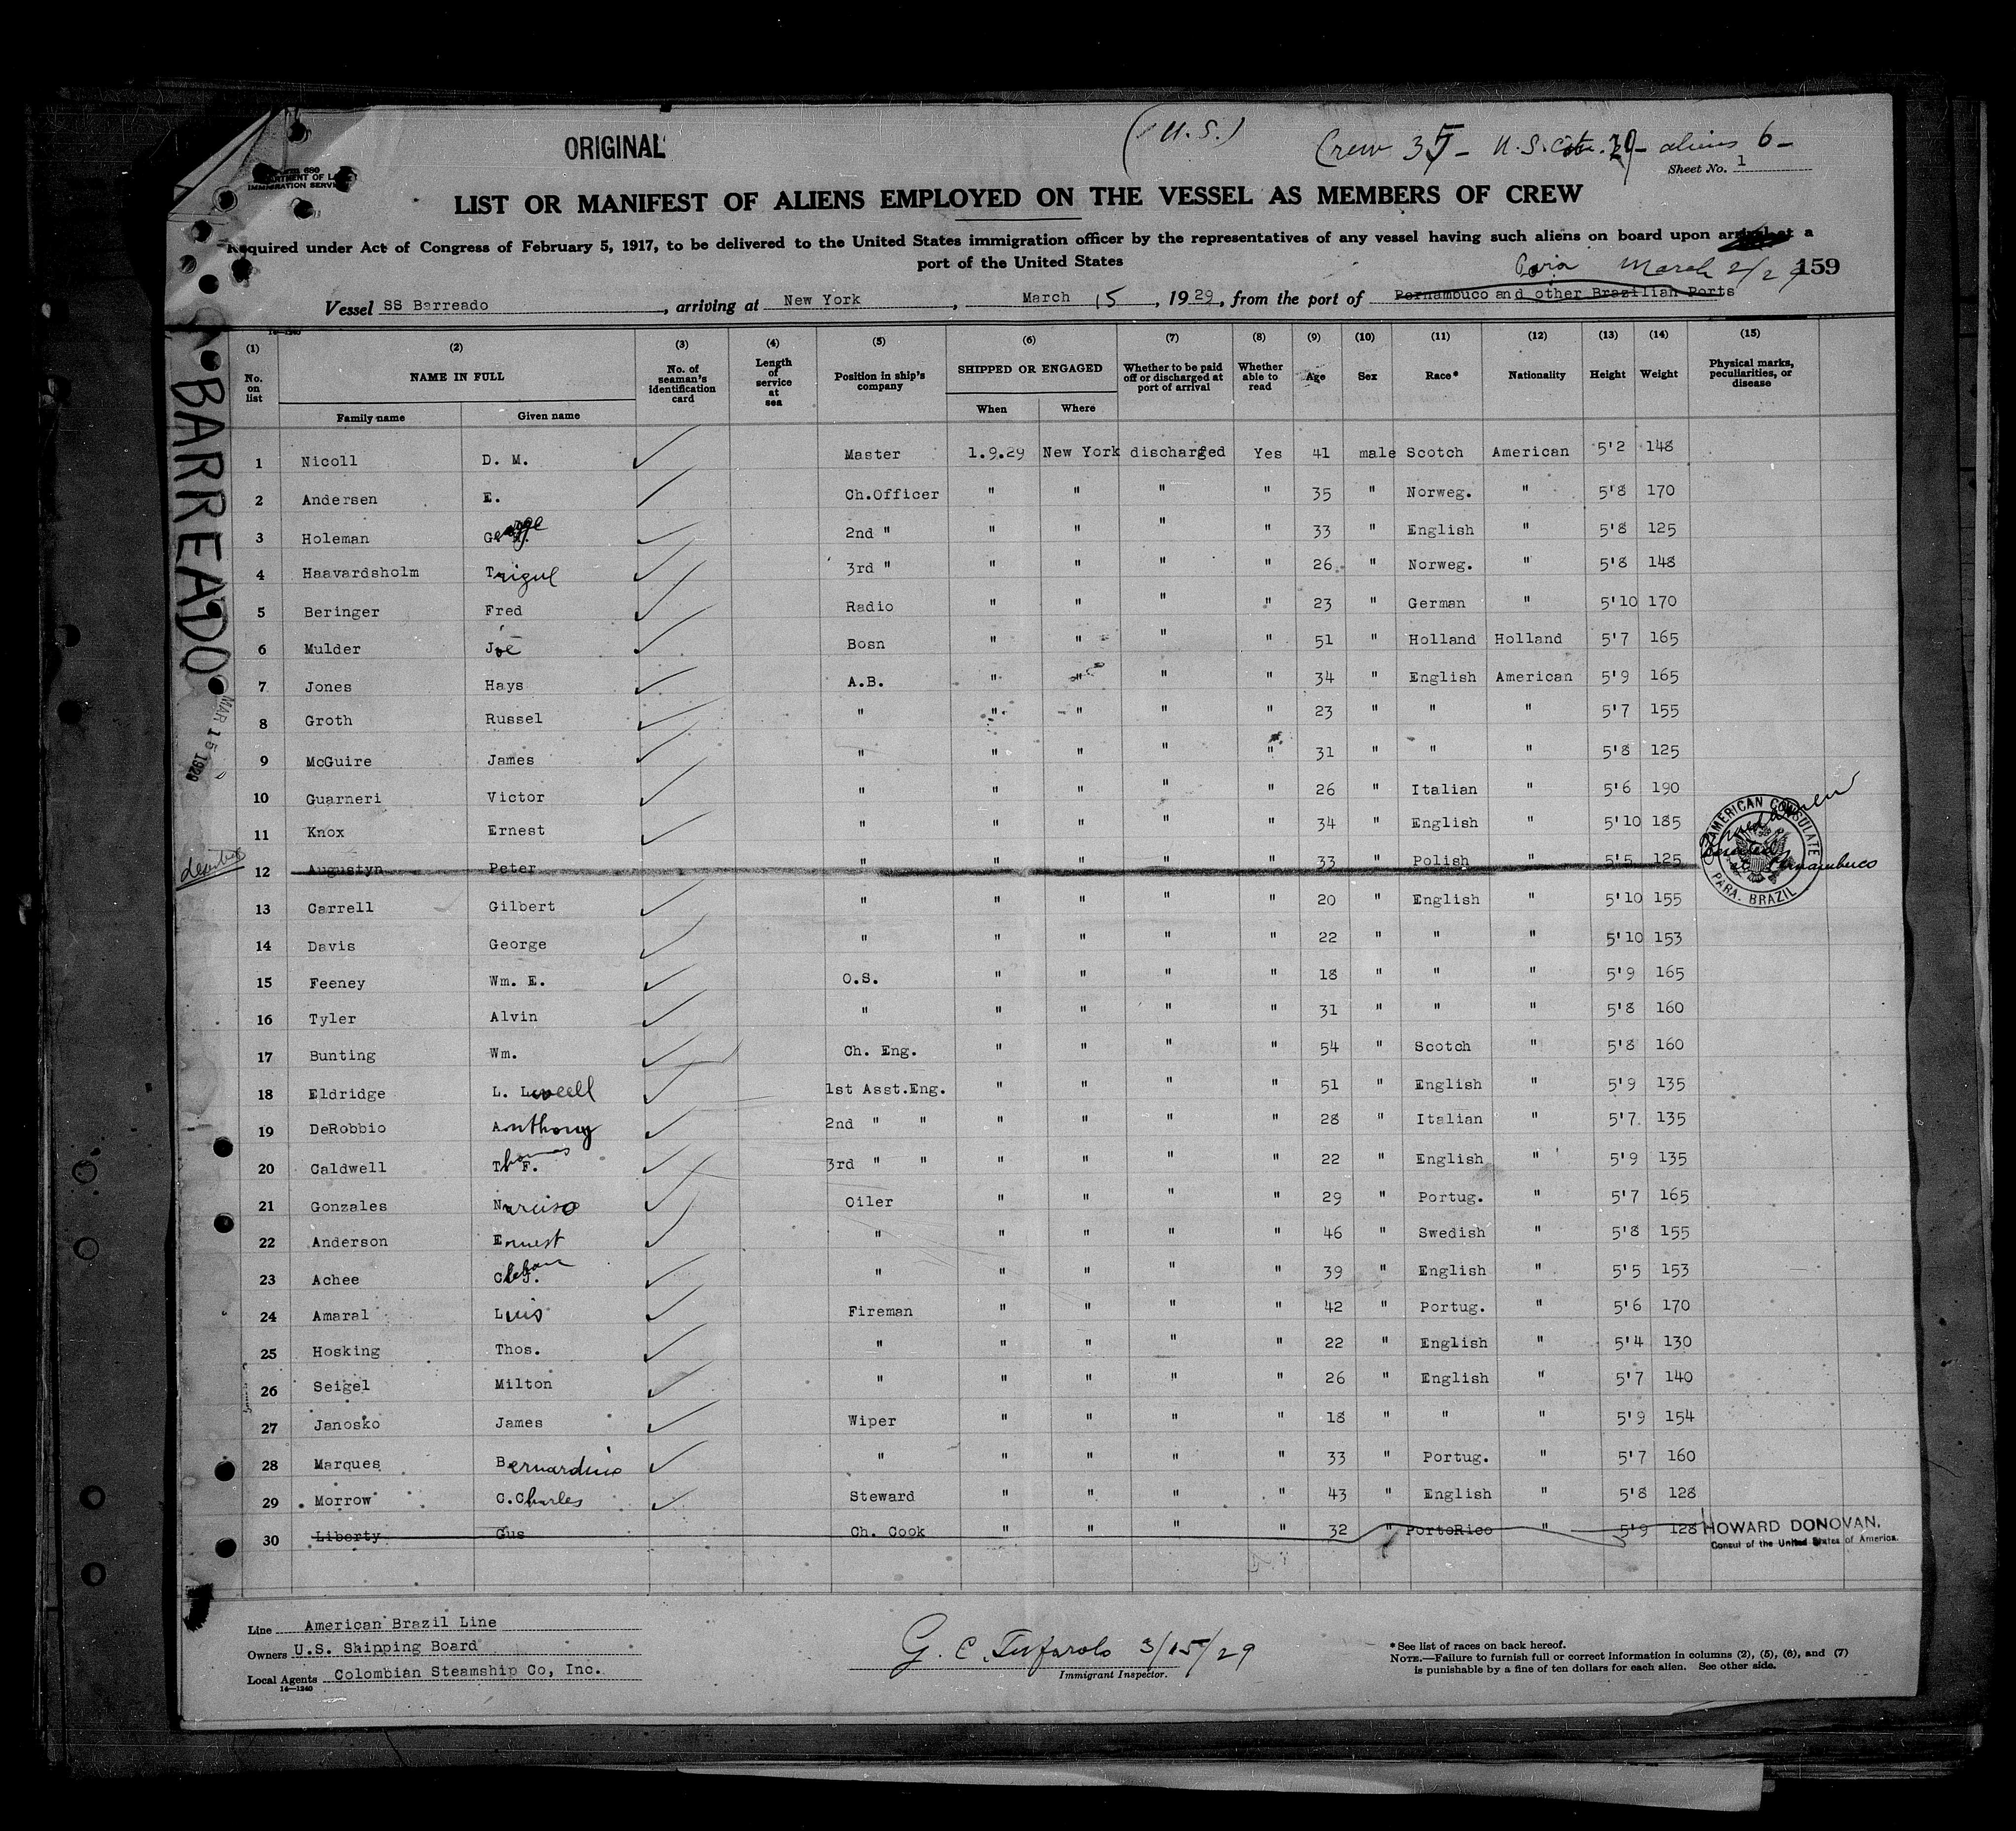 ORIGINAL
(U.S.)
Crew 35 - U.S. - aliens 6 -
Sheet No. 1
LIST OR MANIFEST OF ALIENS EMPLOYED ON THE VESSEL AS MEMBERS OF CREW
Required under Act of Congress of February 5, 1917, to be delivered to the United States immigration officer by the representatives of any vessel having such aliens on board upon arrival at a
port of the United States
Para March 2/29 159
Vessel SS Barreado, arriving at New York, March 15, 1929, from the port of Pernambuco and other Brazilian Ports
(1) (2) (3) (4) (5) (6) (7) (8) (9) (10) (11) (12) (13) (14) (15)
No. on list NAME IN FULL No. of seaman's identification card Length of service at sea Position in ship's company SHIPPED OR ENGAGED Whether to be paid off or discharged at port of arrival Whether able to read Age Sex Race* Nationality Height Weight Physical marks, peculiarities, or disease
Family name Given name When Where
BARREADO
MAR 15 1929
1 Nicoll D. M. Master 1.9.29 New York discharged Yes 41 male Scotch American 5'2 148
2 Andersen E. Ch.Officer " " " " 35 " Norweg. " 5'8 170
3 Holeman George 2nd " " " " " 33 " English " 5'8 125
4 Haavardsholm Trigul 3rd " " " " " 26 " Norweg. " 5'8 148
5 Beringer Fred Radio " " " " 23 " German " 5'10 170
6 Mulder Joe Bosn " " " " 51 " Holland Holland 5'7 165
7 Jones Hays A.B. " " " " 34 " English American 5'9 165
8 Groth Russel " " " " " 23 " " " 5'7 155
9 McGuire James " " " " " 31 " " " 5'8 125
10 Guarneri Victor " " " " " 26 " Italian " 5'6 190
11 Knox Ernest " " " " " 34 " English " 5'10 185
12 Augustyn Peter " " " " " 33 " Polish " 5'5 125 Pernambuco
AMERICAN CONSULATE
PARA. BRAZIL
13 Carrell Gilbert " " " " " 20 " English " 5'10 155
14 Davis George " " " " " 22 " " " 5'10 153
15 Feeney Wm. E. O.S. " " " " 18 " " " 5'9 165
16 Tyler Alvin " " " " " 31 " " " 5'8 160
17 Bunting Wm. Ch. Eng. " " " " 54 " Scotch " 5'8 160
18 Eldridge L. Lowell 1st Asst.Eng. " " " " 51 " English " 5'9 135
19 DeRobbio Anthony 2nd " " " " " " 28 " Italian " 5'7 135
20 Caldwell Thomas F. 3rd " " " " " " 22 " English " 5'9 135
21 Gonzales Narciso Oiler " " " " 29 " Portug. " 5'7 165
22 Anderson Ernest " " " " " 46 " Swedish " 5'8 155
23 Achee " " " " " 39 " English " 5'5 153
24 Amaral Luis Fireman " " " " 42 " Portug. " 5'6 170
25 Hosking Thos. " " " " " 22 " English " 5'4 130
26 Seigel Milton " " " " " 26 " English " 5'7 140
27 Janosko James Wiper " " " " 18 " " " 5'9 154
28 Marques Bernardino " " " " " 33 " Portug. " 5'7 160
29 Morrow C. Charles Steward " " " " 43 " English " 5'8 128
30 Liberty Gus Ch. Cook " " " " 32 " PortoRico " 5'9 128
HOWARD DONOVAN.
Consul of the United States of America.
Line American Brazil Line
Owners U.S. Shipping Board
Local Agents Colombian Steamship Co, Inc.
14—1240
G. C. Tufarolo 3/15/29
Immigrant Inspector.
*See list of races on back hereof.
NOTE.—Failure to furnish full or correct information in columns (2), (5), (6), and (7)
is punishable by a fine of ten dollars for each alien. See other side.